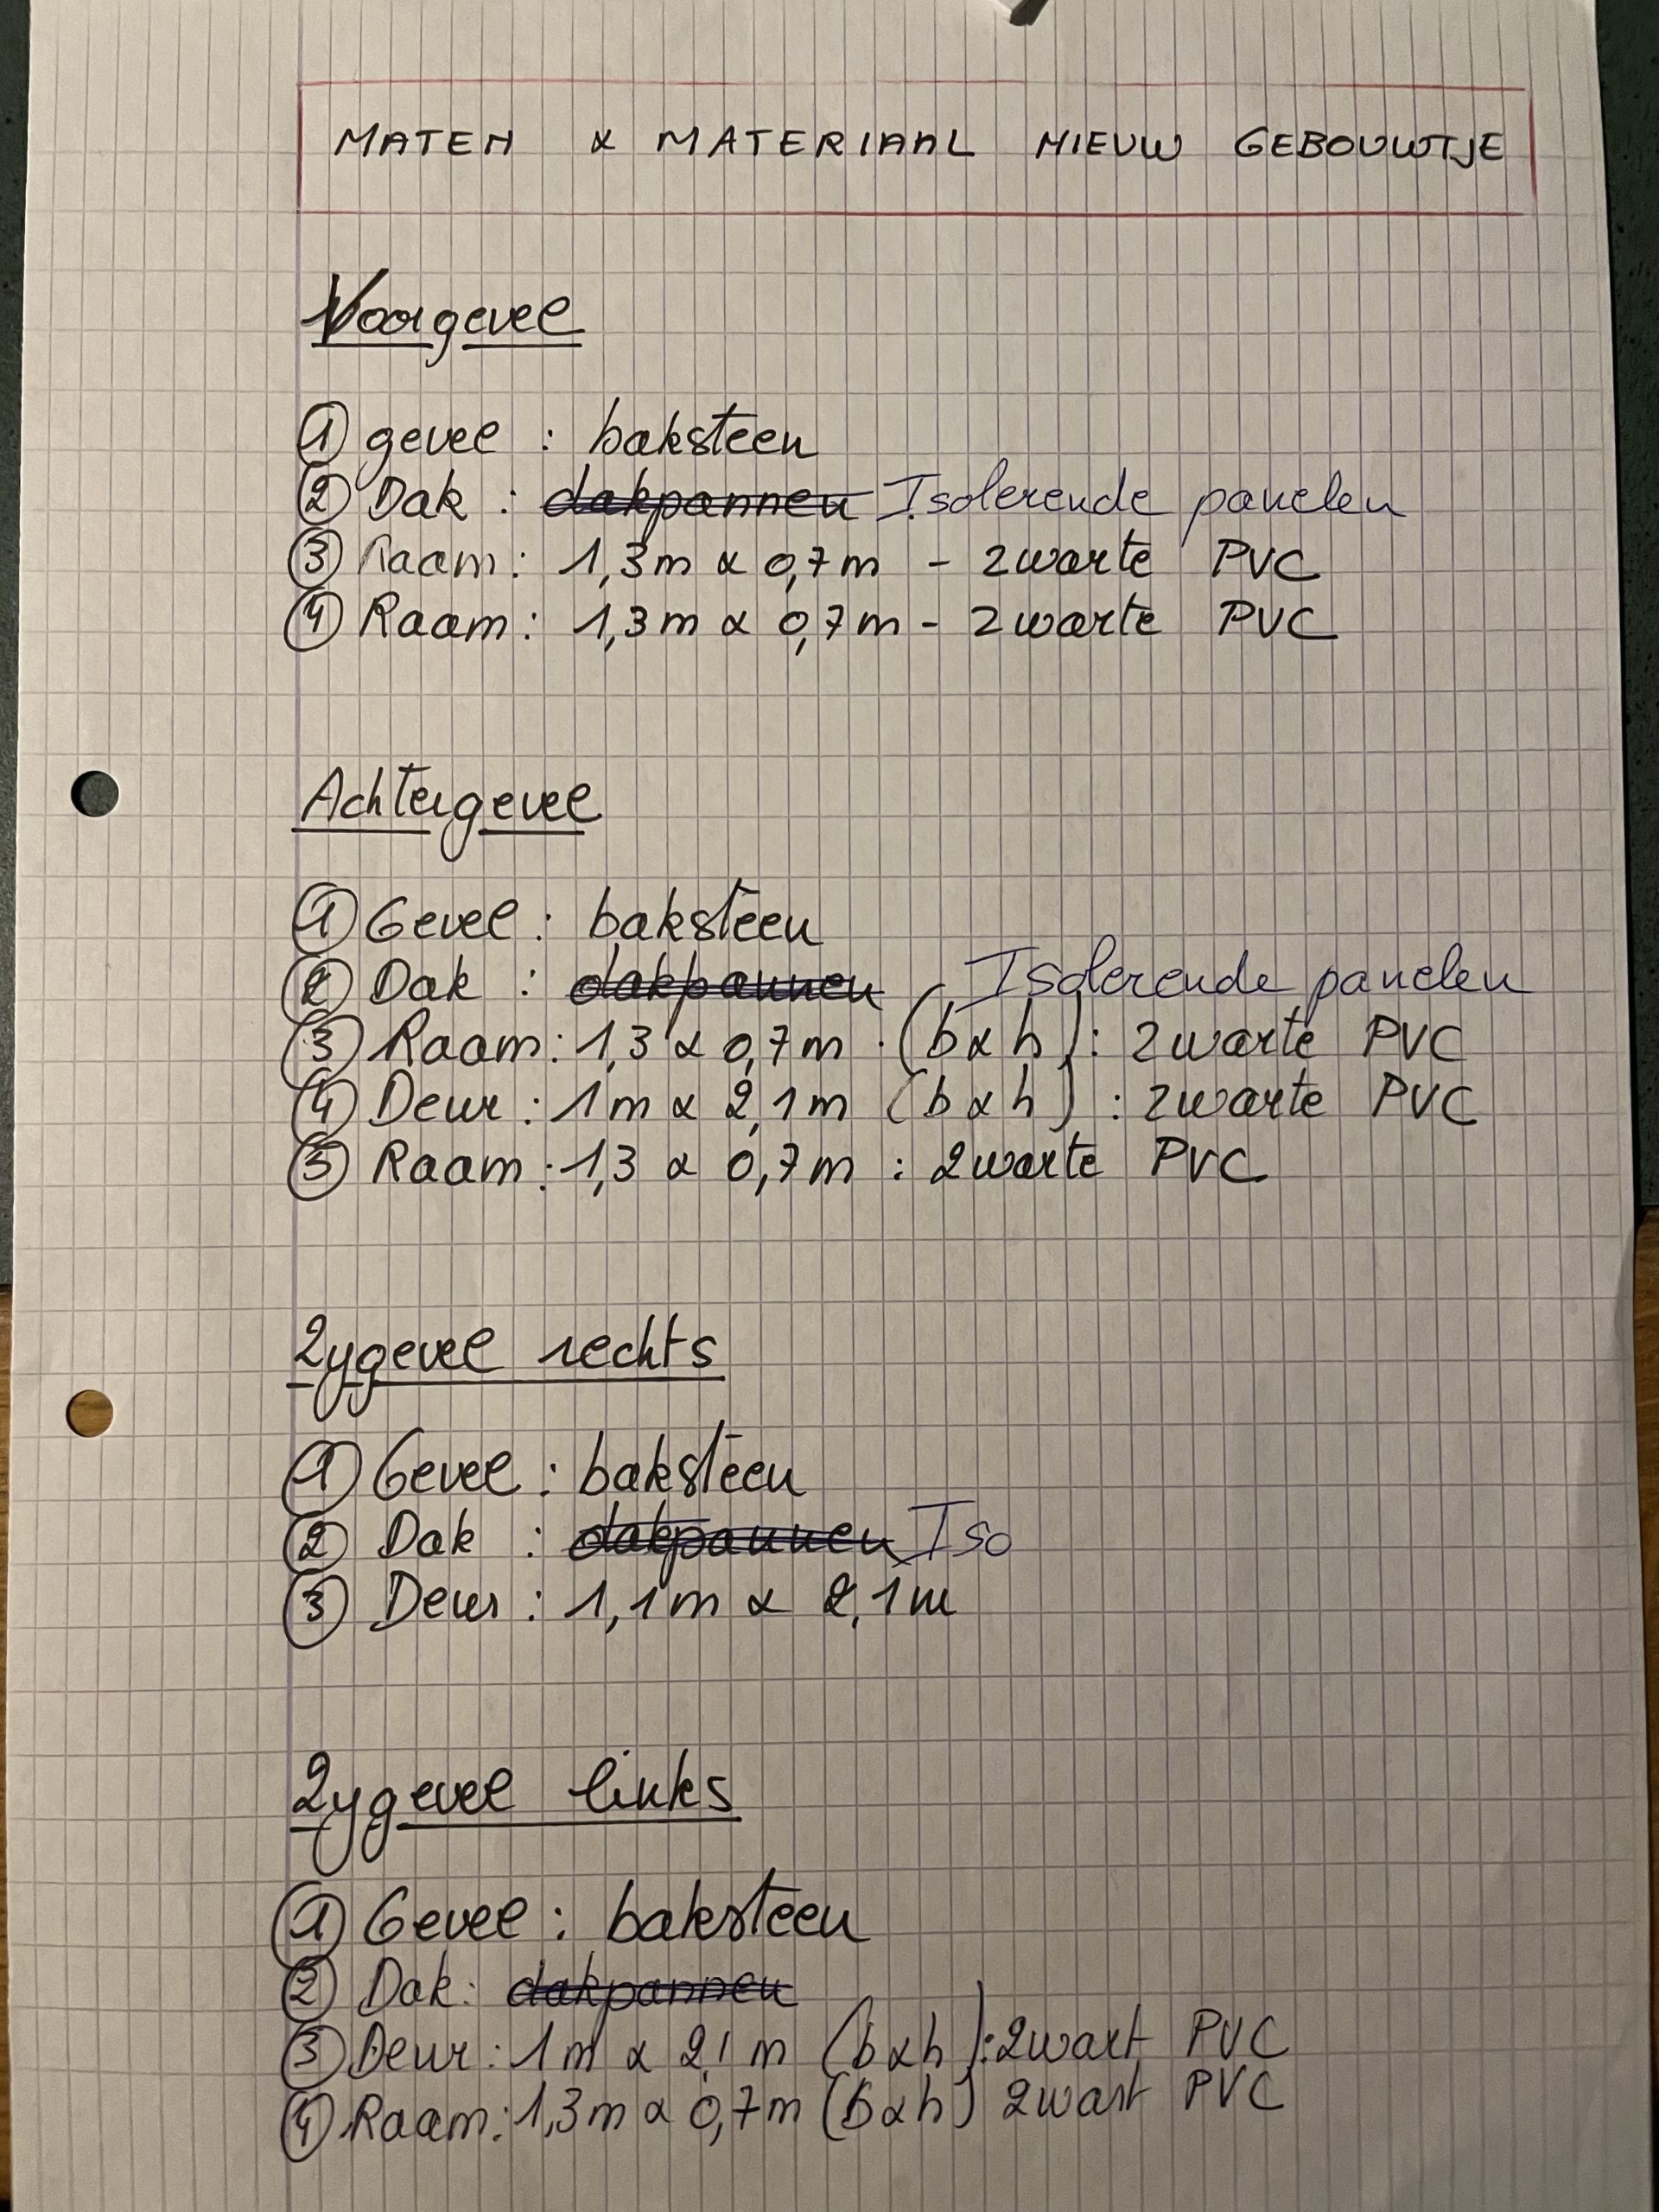 MATEN x MATERIAAL NIEUW GEBOUWTJE
Voorgevel
① gevel : baksteen
② Dak : dakpannen Isolerende panelen
③ Raam : 1,3m x 0,7m - zwarte PVC
④ Raam : 1,3m x 0,7m - zwarte PVC
Achtergevel
① Gevel : baksteen
② Dak : dakpannen Isolerende panelen
③ Raam : 1,3 x 0,7m (b x h) : zwarte PVC
④ Deur : 1m x 2,1m (b x h) : zwarte PVC
⑤ Raam : 1,3 x 0,7m : zwarte PVC
Zygevel rechts
① Gevel : baksteen
② Dak : dakpannen Iso
③ Deur : 1,1m x 2,1m
Zygevel links
① Gevel : baksteen
② Dak : dakpannen
③ Deur : 1m x 2,1m (b x h) : zwart PVC
④ Raam : 1,3m x 0,7m (b x h) zwart PVC